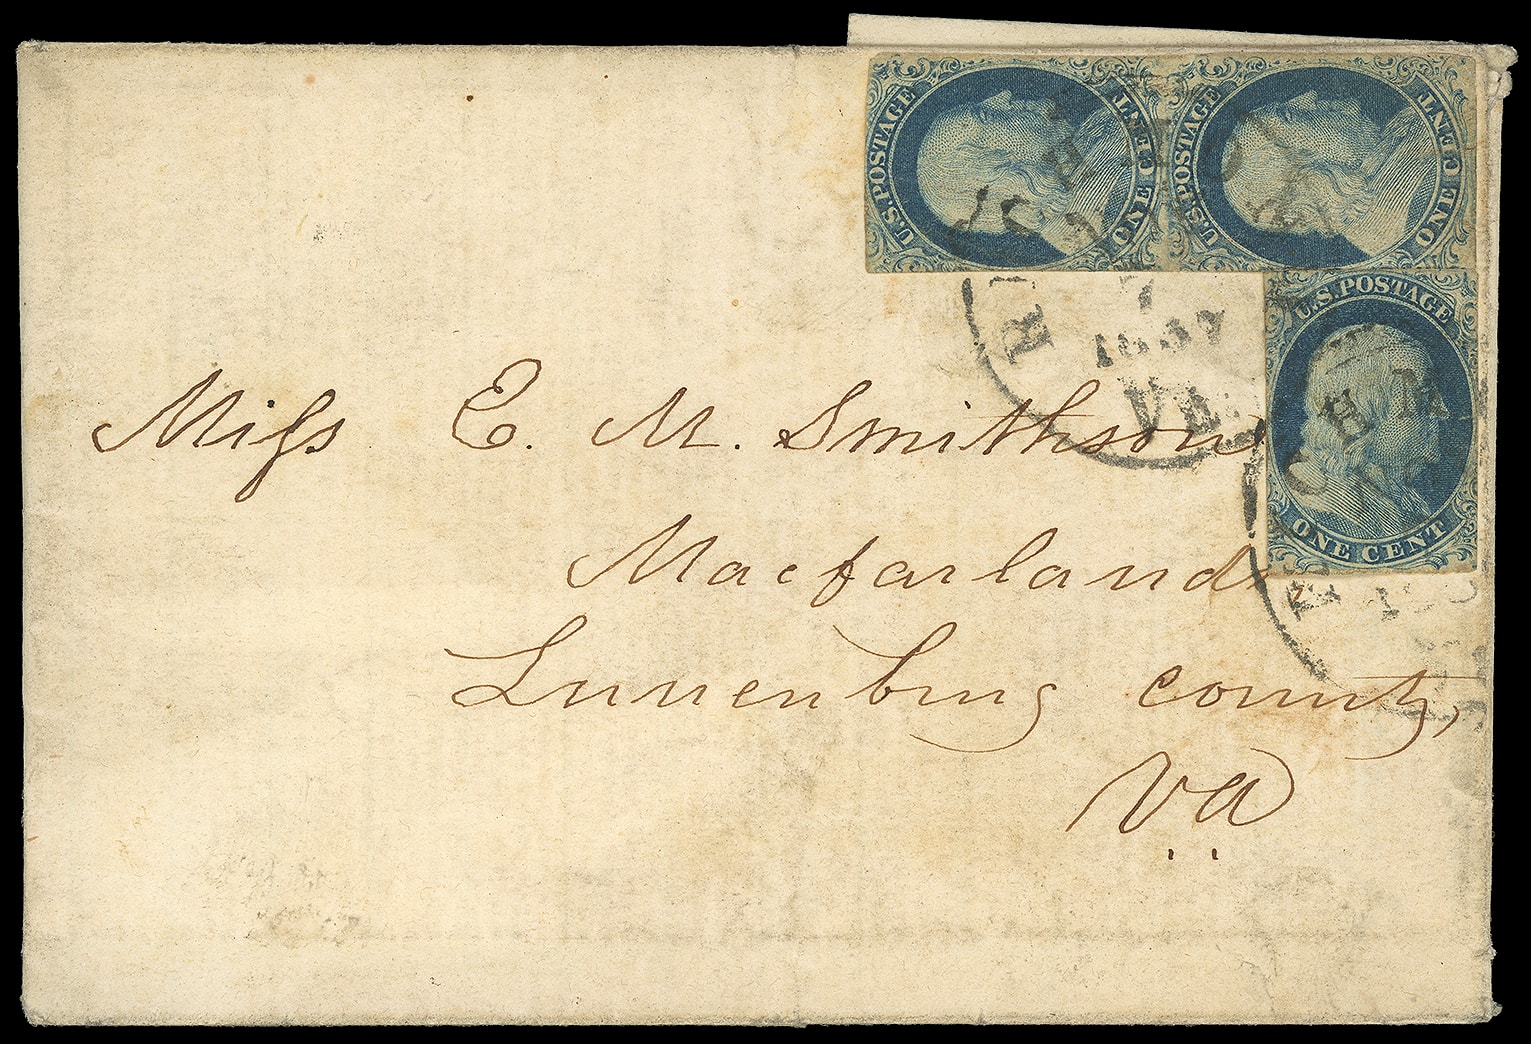 U.S. POSTAGE
ONE CENT
U.S. POSTAGE
ONE CENT
U.S. POSTAGE
ONE CENT
1857
Va
Miſs E. M. Smithson
Macfarlands,
Lunenburg County,
Va